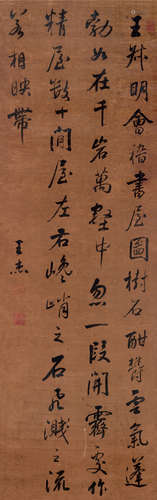 王叔明會稽書屋圖樹石酣鬱雲氣蓬
勃如在千岩萬壑中忽一段開霽更作
精屋數十閒屋左右巉峭之石飛濺之流
若相映帶
王杰